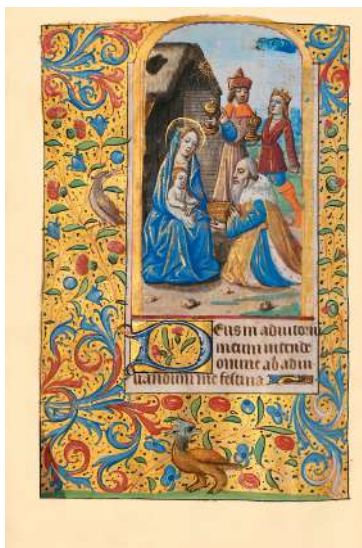 Deus in adiutoriū
meum intende
omine ad adiu
uandum me festina